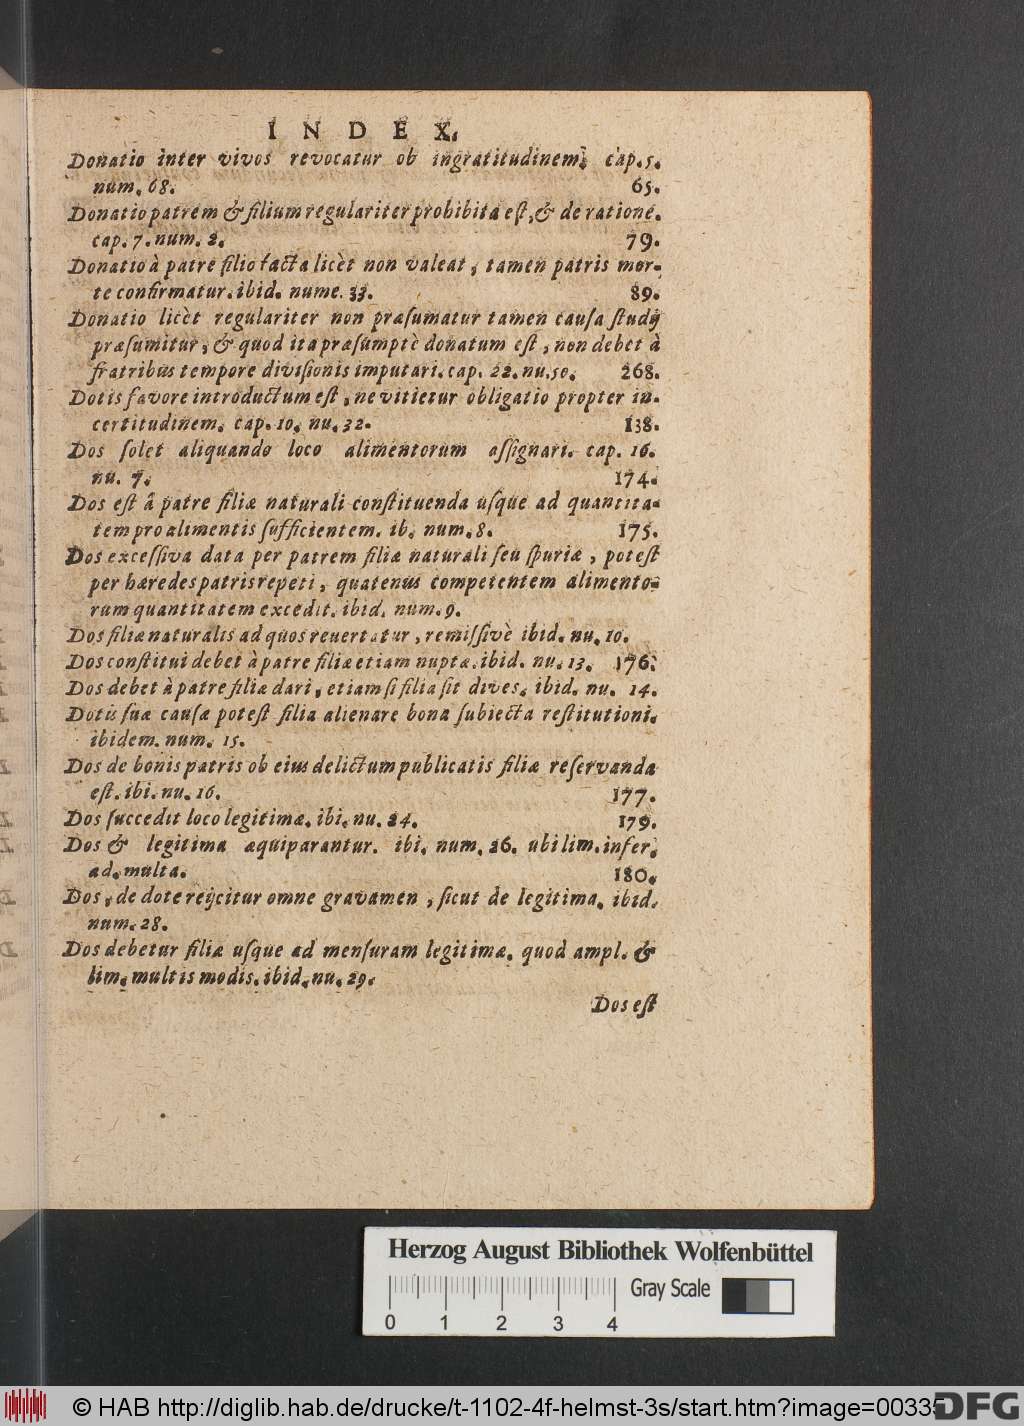 INDEX.
Donatio inter vivos revocatur ob ingratitudinem, cap. 5.
num. 68. 65.
Donatio patrem & filium regulariter prohibita eſt, & de ratione.
cap. 7. num. 2. 79.
Donatio à patre filio facta licèt non valeat, tamen patris mor-
te confirmatur. ibid. nume. 33. 89.
Donatio licèt regulariter non præſumatur tamen cauſa ſtudij
præſumitur, & quod ita præſumptè donatum eſt, non debet à
fratribus tempore diviſionis imputari. cap. 22. nu. 50. 268.
Dotis favore introductum eſt, ne vitietur obligatio propter in-
certitudinem. cap. 10. nu. 32. 138.
Dos ſolet aliquando loco alimentorum aſſignari. cap. 16.
nu. 7. 174.
Dos eſt â patre filiæ naturali conſtituenda uſque ad quantita-
tem pro alimentis ſufficientem. ib. num. 8. 175.
Dos exceſſiva data per patrem filiæ naturali ſeu ſpuriæ, poteſt
per hæredes patris repeti, quatenus competentem alimento-
rum quantitatem excedit. ibid. num. 9.
Dos filiæ naturalis ad quos revertatur, remiſſivè ibid. nu. 10.
Dos conſtitui debet à patre filiæ etiam nuptæ. ibid. nu. 13. 176.
Dos debet à patre filiæ dari, etiam ſi filia ſit dives. ibid. nu. 14.
Dotis ſuæ cauſæ poteſt filia alienare bona ſubiecta reſtitutioni.
ibidem. num. 15.
Dos de bonis patris ob eius delictum publicatis filiæ reſervanda
eſt. ibi. nu. 16. 177.
Dos ſuccedit loco legitimæ. ibi. nu. 24. 179.
Dos & legitima æquiparantur. ibi. num. 26. ubi lim. infer.
ad. multa. 180.
Dos, de dote reijcitur omne gravamen, ſicut de legitima. ibid.
num. 28.
Dos debetur filiæ uſque ad menſuram legitimæ. quod ampl. &
lim. multis modis. ibid. nu. 29.
Dos eſt
Herzog August Bibliothek Wolfenbüttel
Gray Scale
0 1 2 3 4
© HAB http://diglib.hab.de/drucke/t-1102-4f-helmst-3s/start.htm?image=00335
DFG